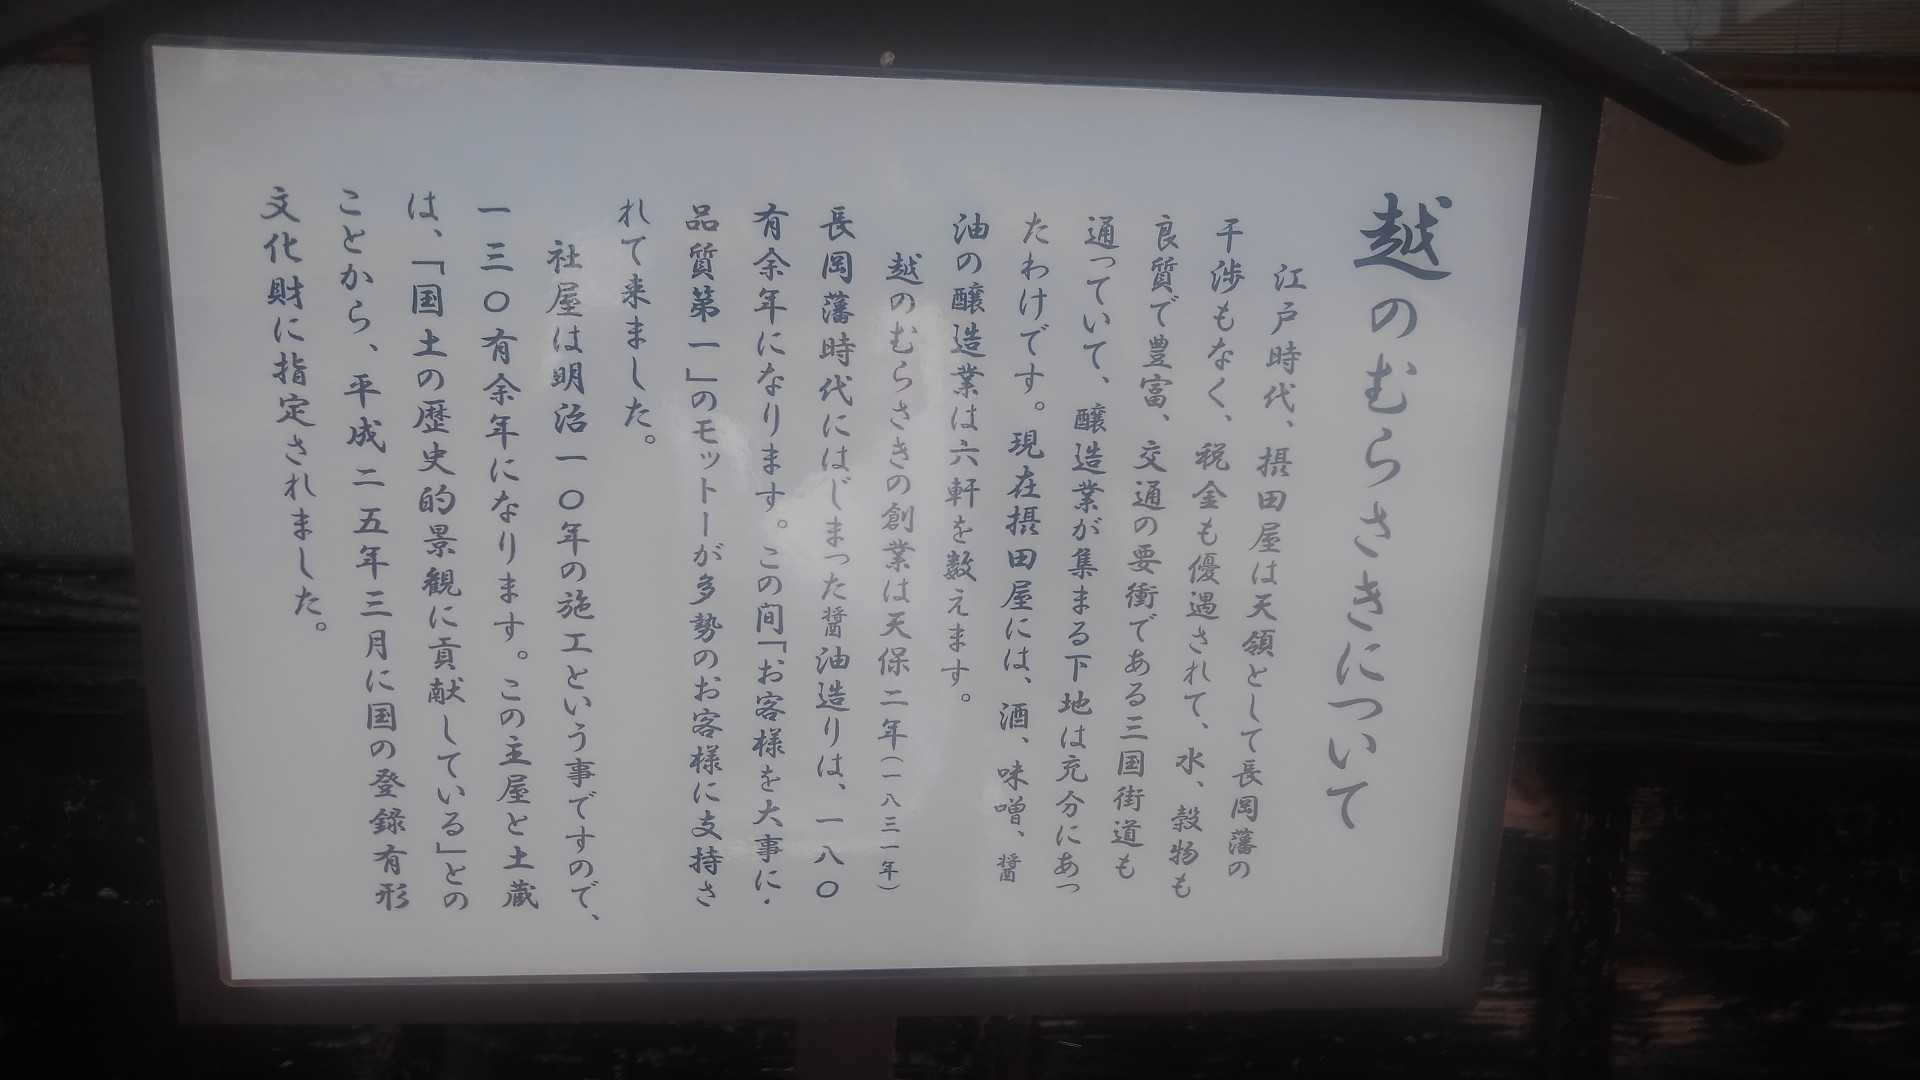 越のむらさきについて
江戸時代、摂田屋は天領として長岡藩の
干渉もなく、税金も優遇されて、水、穀物も
良質で豊富、交通の要衝である三国街道も
通っていて、醸造業が集まる下地は充分にあっ
たわけです。現在摂田屋には、酒、味噌、醤
油の醸造業は六軒を数えます。
越のむらさきの創業は天保二年(一八三一年)
長岡藩時代にはじまった醤油造りは、一八〇
有余年になります。この間「お客様を大事に・
品質第一」のモットーが多勢のお客様に支持さ
れて来ました。
社屋は明治一〇年の施工という事ですので、
一三〇有余年になります。この主屋と土蔵
は、「国土の歴史的景観に貢献している」との
ことから、平成二五年三月に国の登録有形
文化財に指定されました。